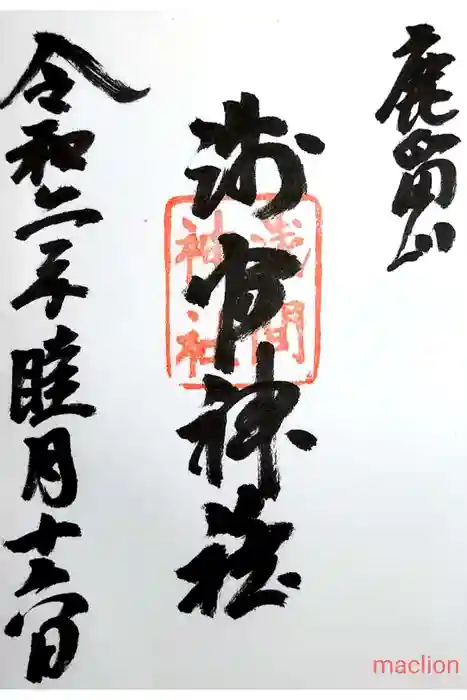 鹿留山
浅間神社
浅間
神社
令和二年睦月十六日
maclion